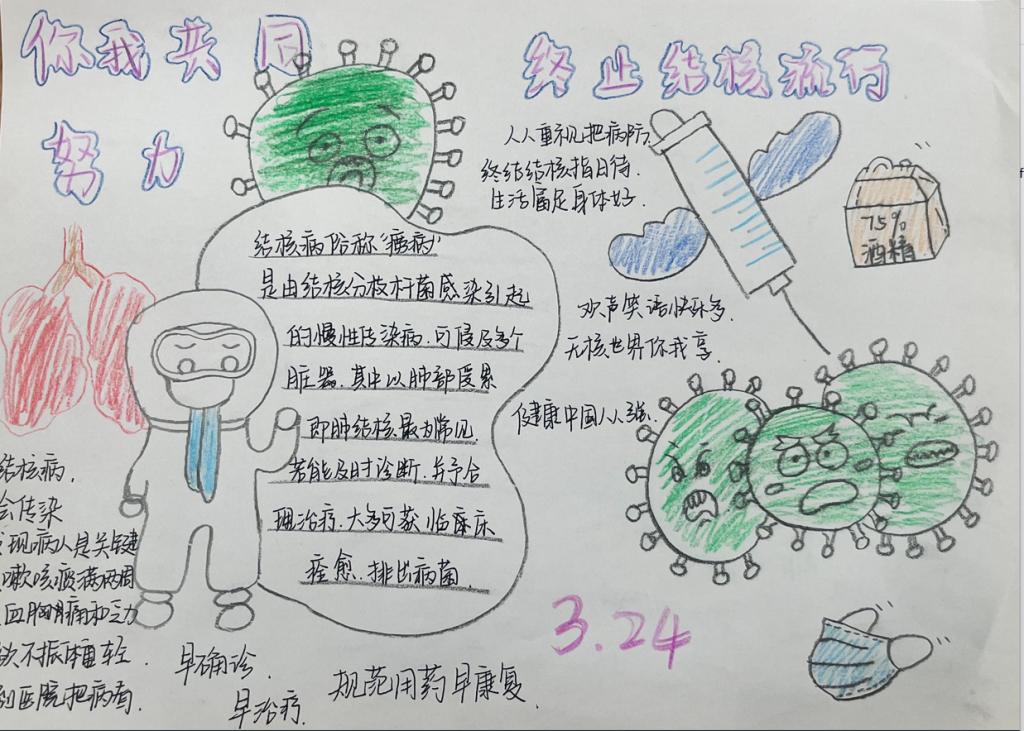 你我共同
努力
终止结核流行
人人重视把病防.
终结结核指日待.
生活富足身体好.
75%
酒精
欢声笑语快乐多.
无核世界你我享.
健康中国人人强.
结核病俗称“痨病”
是由结核分枝杆菌感染引起
的慢性传染病.可侵及多个
脏器.其中以肺部受累
即肺结核最为常见.
若能及时诊断.并予合
理治疗.大多可获临床床
痊愈.排出病菌.
结核病.
会传染
现病人是关键
嗽咳痰满两周
血胸痛和乏力
欲不振体重轻.
到医院把病看.
早确诊.
早治疗.
规范用药早康复.
3.24